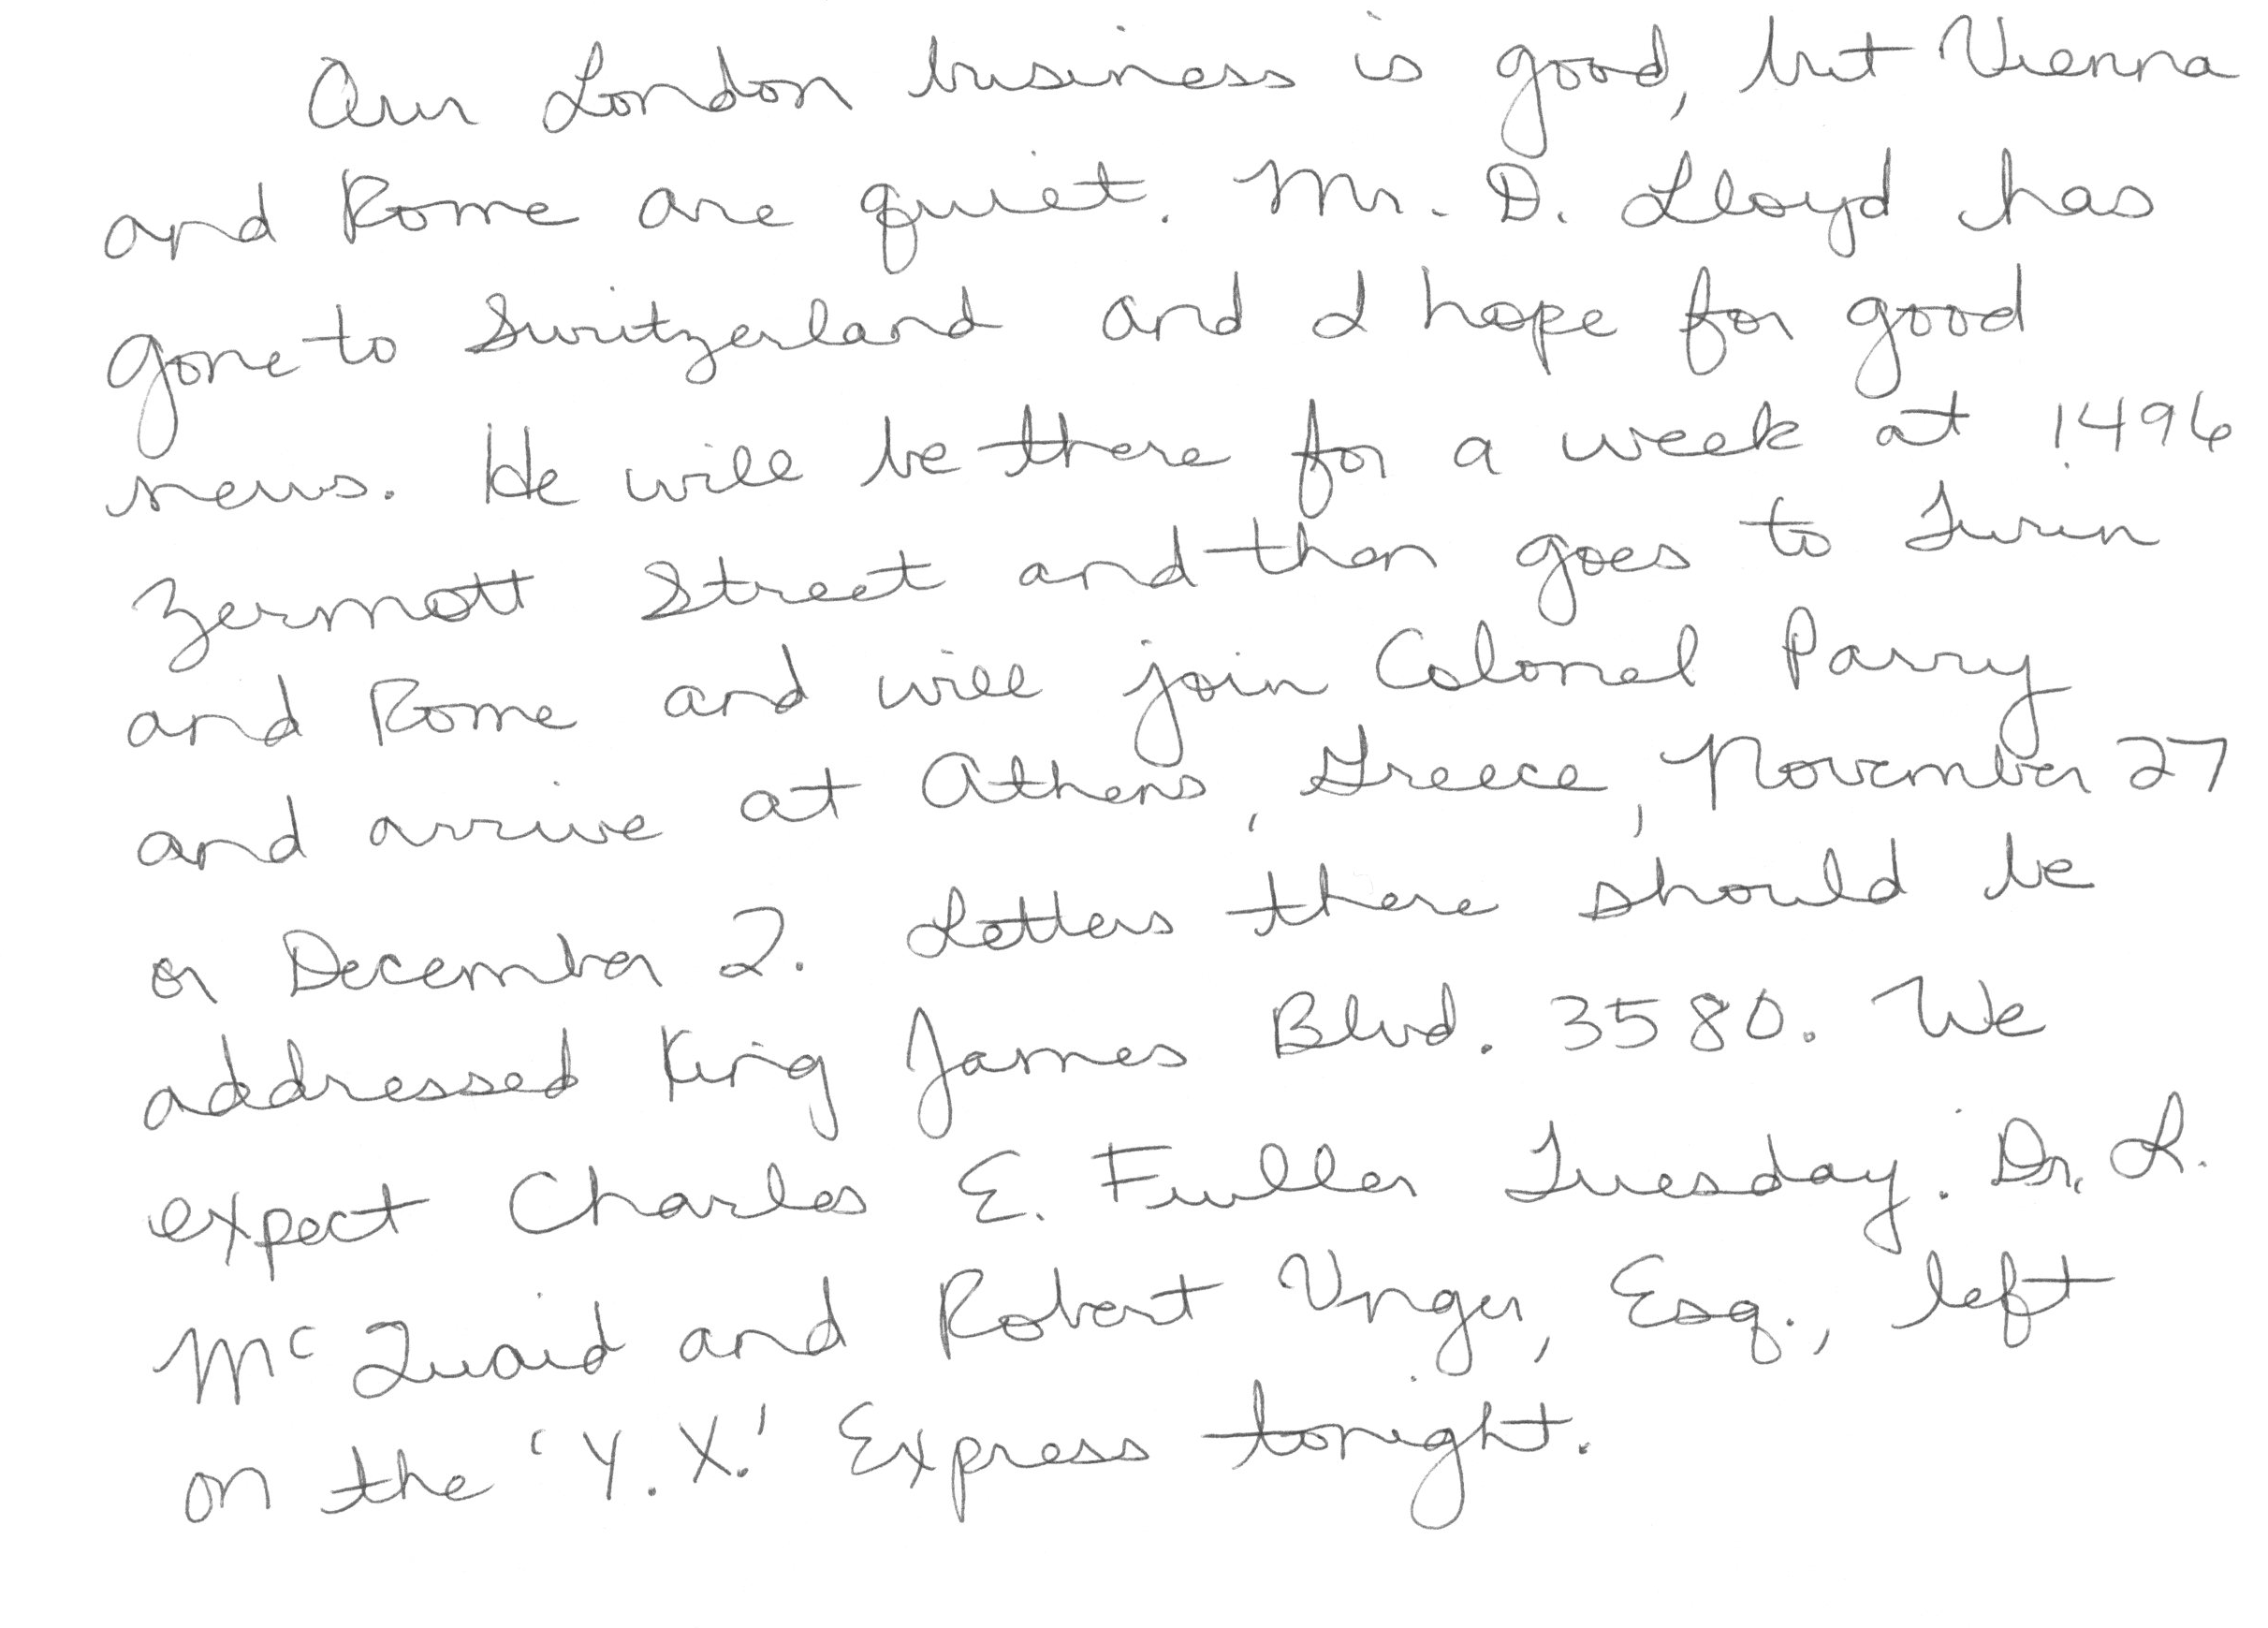 Our London business is good, but Vienna
and Rome are quiet. Mr. D. Lloyd has
gone to Switzerland and I hope for good
news. He will be there for a week at 1496
Zermott Street and then goes to Turin
and Rome and will join Colonel Parry
and arrive at Athens, Greece, November 27
or December 2. Letters there should be
addressed King James Blvd. 3580. We
expect Charles E. Fuller Tuesday. Dr. L.
McQuaid and Robert Unger, Esq., left
on the 'Y.X.' Express tonight.